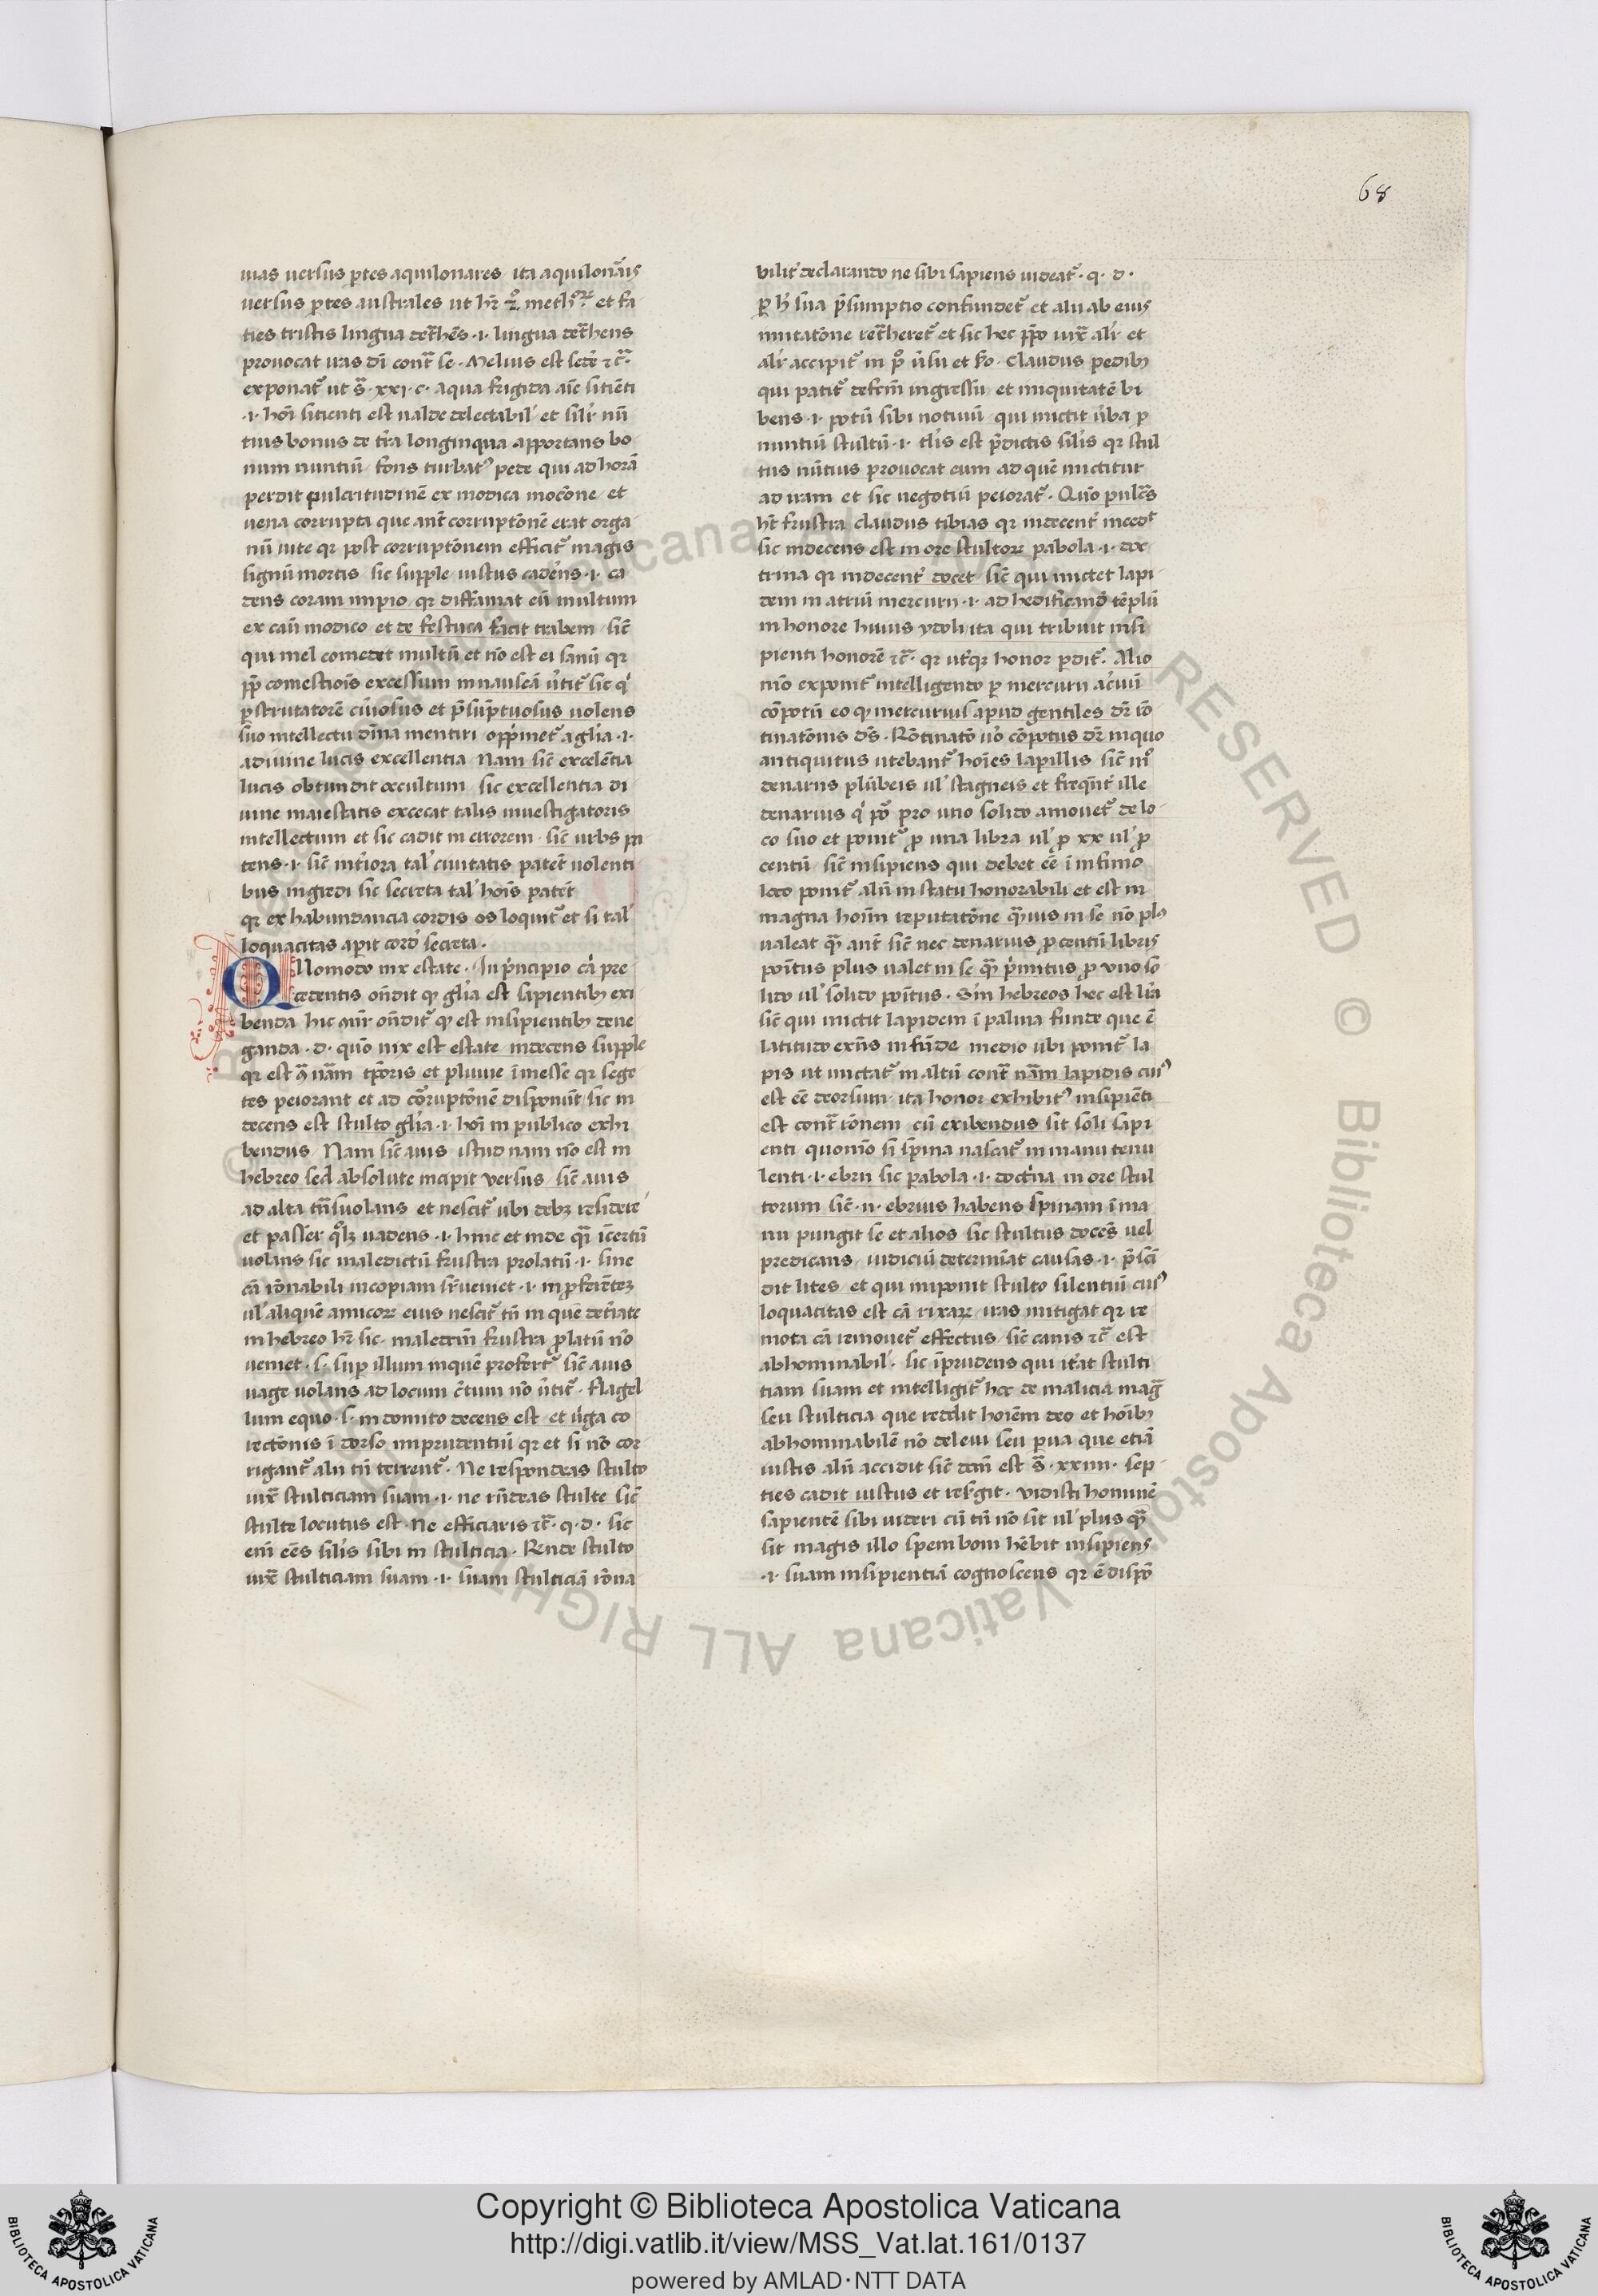 68
uias uersus ꝑtes aquilonares ita aquilonãis
uersus ꝑtes australes ut hr̃ 2º meth'orꝝ et fa
ties tristis lingua det̃hẽs .i. lingua det̃hens
prouocat iras dñi cont̃ se. Melius est sedẽ ⁊c̃.
exponat᷑ ut s̃. xxi. c. Aqua frigida aĩe sitiẽti
.i. hoĩ sitienti est ualde delectabil' et silr̃ nũ
tius bonus de t̃ra longinqua apportans bo
num nuntiũ fons turbatꝰ pede qui ad horã
perdit pulcritudinẽ ex modica moc̃one et
uena corrupta que ant̃ corrupt̃onẽ erat orga
nũ uite qr post corrupt̃onem efficit᷑ magis
signũ mortis sic supple iustus cadẽns .i. ca
dens coram impio qr diffamat eũ multum
ex cãu modico et de festuca facit trabem sic̃
qui mel comedet multũ et nõ est ei sanũ qr
ꝓp̃ comestiois excessum in nauseã ũtit᷑ sic q'
ꝑstrutatorẽ c̃uiosus et p̃sũptuosus uolens
suo intellectu diĩna mentiri opp̃met᷑ a gl'ia .i.
a diuine lucis excellentia Nam sic̃ excelẽtia
lucis obtundit occultum sic excellentia di
uine maiestatis excecat talis inuestigatoris
intellectum et sic cadit in errorem. sic̃ urbs pa
tens .i. sic̃ int̃iora tal' ciuitatis patẽt uolenti
bus ingredi sic secreta tal' hoĩs patẽt
qr ex habundancia cordis os loquit᷑ et si tal'
loquacitas aꝑit cord' secreta.
QUomodo nix estate. In p̃ncipio c̃i pre
cedentis oñdit qꝫ gl'ia est sapientibꝫ exi
benda hic aũr oñdit᷑ qꝫ est insipientibꝫ dene
ganda .d. quõ nix est estate indecens supple
qr est c̃ nãm tꝑoris et pluuie ĩ messe qr sege
tes peiorant et ad cõruptõnẽ disponũt sic in
decens est stulto gl'ia .i. hoĩ in publico exhi
bendus Nam sic̃ auis istud nam nõ est in
hebreo sed absolute incipit uersus sic̃ auis
ad alta tñsuolans et nescit᷑ ubi debꝫ residere
et passer qºlꝫ uadens .i. hinc et inde q̃i ĩcertũ
uolans sic maledictũ frustra prolatũ .i. sine
cã rõnabili in copiam sr̃ueniet .i. in ꝓferẽteꝫ
ul' aliquẽ amicoꝝ eius nescit᷑ tñ in quẽ det̃iate
in hebreo hr̃ sic. maledc̃m frustra ꝓlatũ nõ
ueniet .s. suꝑ illum in quẽ profert᷑ sic̃ auis
uage uolans ad locum c̃tum nõ ũtit᷑. Flagel
lum equo .s. indomito decens est et ũga co
rect̃onis ĩ dorso imprudentiũ qr et si nõ cor
rigant᷑ alii tñ terrent᷑. Ne respondeas stulto
iux̃ stulticiam suam .i. ne rñdeas stulte sic̃
stulte locutus est. Ne efficiaris ⁊c̃. q.d. sic
eni eẽs silis sibi in stulticia. Rñde stulto
iux̃ stulticiam suam .i. suam stulticiã rõna
bilit' declarando ne sibi sapiens uideat᷑. q. d.
ꝑ h' sua p̃sumptio confundet᷑ et alii ab eius
imitatõne ret̃heret᷑ et sic hec ꝓpo iux̃ alr̃ et
alr̃ accipit᷑ in pº ũsu et sº. Claudus pedibꝫ
qui patit᷑ defc̃m ingressu et iniquitatẽ bi
bens .i. potũ sibi notiuũ qui mictit ũba ꝑ
nuntiũ stultũ .i. tl'is est p̃dictis sil'is qr stul
tus nũtius prouocat eum ad quẽ mictitur
ad iram et sic negotiũ peiorat᷑. Quõ pulc̃s
hẽt frustra claudus tibias qr indecent' inced᷑
sic indecens est in ore stultorꝝ pabola .i. doc
trina qr indecent' docet sic̃ qui mictet lapi
dem in atriũ mercurii .i. ad hedificand' tẽplũ
in honore huius ydoli ita qui tribuit insi
pienti honorẽ ⁊c̃. qr ut̃qꝫ honor ꝑdit᷑. Alio
mõ exponit᷑ intelligendo ꝑ mercurii ac̃uũ
cõpotũ eo qꝫ mercurius apud gentiles dr̃ rõ
tinatõnis ds̃. Rõtinatõ uº cõpotus dr̃ in quo
antiquitus utebant᷑ hoĩes lapillis sic̃ mº
denariis plũbeis ul' stagneis et freqñt' ille
denarius q' põ pro uno solido amouet᷑ de lo
co suo et ponit᷑ ꝓ una libra ul' ꝓ xx ul' ꝓ
centũ sic̃ insipiens qui debet eẽ ĩ infimo
loco ponit᷑ alĩ in statu honorabili et est in
magna hoĩm reputatõne q̃uis in se nõ plꝰ
ualeat q̃ ant̃ sic̃ nec denarius ꝓ centũ libris
põitus plus ualet in se q̃ p̃mitus ꝓ uno so
lido ul' solido põitus. Sm̃ hebreos hec est lr̃a
sic̃ qui mictit lapidem ĩ palma funde que ẽ
latitudo exñs in fũde medio ubi ponit᷑ la
pis ut iactat᷑ in altũ cont̃ nãm lapidis cuiꝰ
est eẽ deorsum. ita honor exhibitꝰ insipiẽti
est cont̃ rõnem cũ exibendus sit soli sapi
enti quomõ si spina nascat᷑ in manu temu
lenti .i. ebrii sic pabola .i. doct̃na in ore stul
torum sic̃ .n. ebrius habens spinam ĩ ma
nu pungit se et alios sic stultus docẽs uel
predicans iudiciũ determĩat causas .i. p̃sci
dit lites et qui imponit stulto silentiũ cuiꝰ
loquacitas est cã rixarꝝ iras mitigat qr re
mota cã remouet᷑ effectus sic̃ canis ⁊c̃ est
abhominabil'. sic ĩprudens qui it̃at stulti
tiam suam et intelligit᷑ hec de malicia mag̃
seu stulticia que reddit hoĩem deo et hoĩbꝫ
abhominabilẽ nõ de leui seu ꝑua que etiã
iustis alĩ accidit sic̃ dc̃m est s̃. xxiiii. sep
ties cadit iustus et res'git. Vidisti hominẽ
sapientẽ sibi uideri cũ tñ nõ sit ul' plus q̃
sit magis illo spem boni hẽbit insipiens
.i. suam insipientiã cognoscens qr ẽ dispõ
Copyright © Biblioteca Apostolica Vaticana
http://digi.vatlib.it/view/MSS_Vat.lat.161/0137
powered by AMLAD·NTT DATA